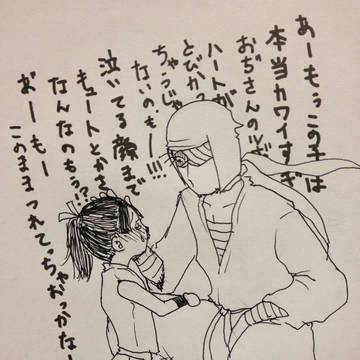 あーもぅこの子は
本当カワイすぎ
おぢさんの
ハートが
とびか
ちゃうじゃ
ないのもー!!!
泣いてる顔まで
キュートとかさ
なんなのもぅ!?
おーもー
このままつれてっちゃおっかなー